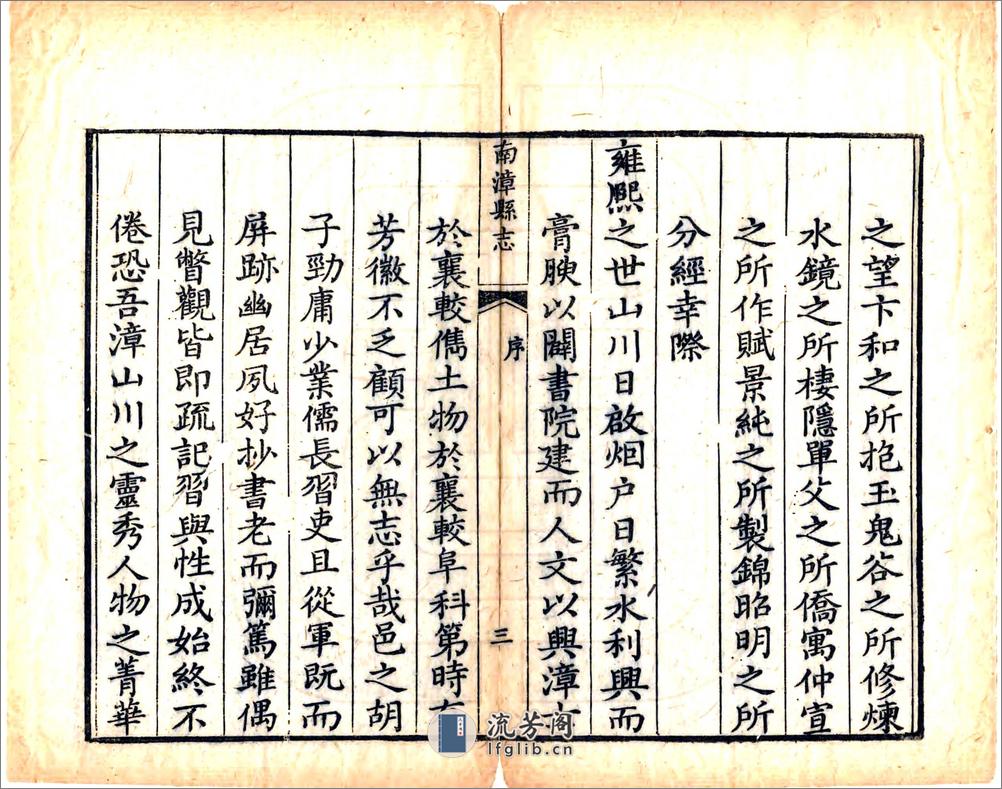 之望卞和之所抱玉鬼谷之所修煉
水鏡之所棲隱單父之所僑寓仲宣
之所作賦景純之所製錦昭明之所
分經幸際
雍熈之世山川日啟烟户日繁水利興而
膏腴以闢書院建而人文以興漳
南漳縣志
序
三
於襄較儁土物於襄較阜科第時
芳徽不乏顧可以無志乎哉邑之胡
子勁庸少業儒長習吏且從軍既而
屏跡幽居夙好抄書老而彌篤雖偶
見瞥觀皆即疏記習與性成始終不
倦恐吾漳山川之靈秀人物之菁華
流芳阁
lfglib.cn